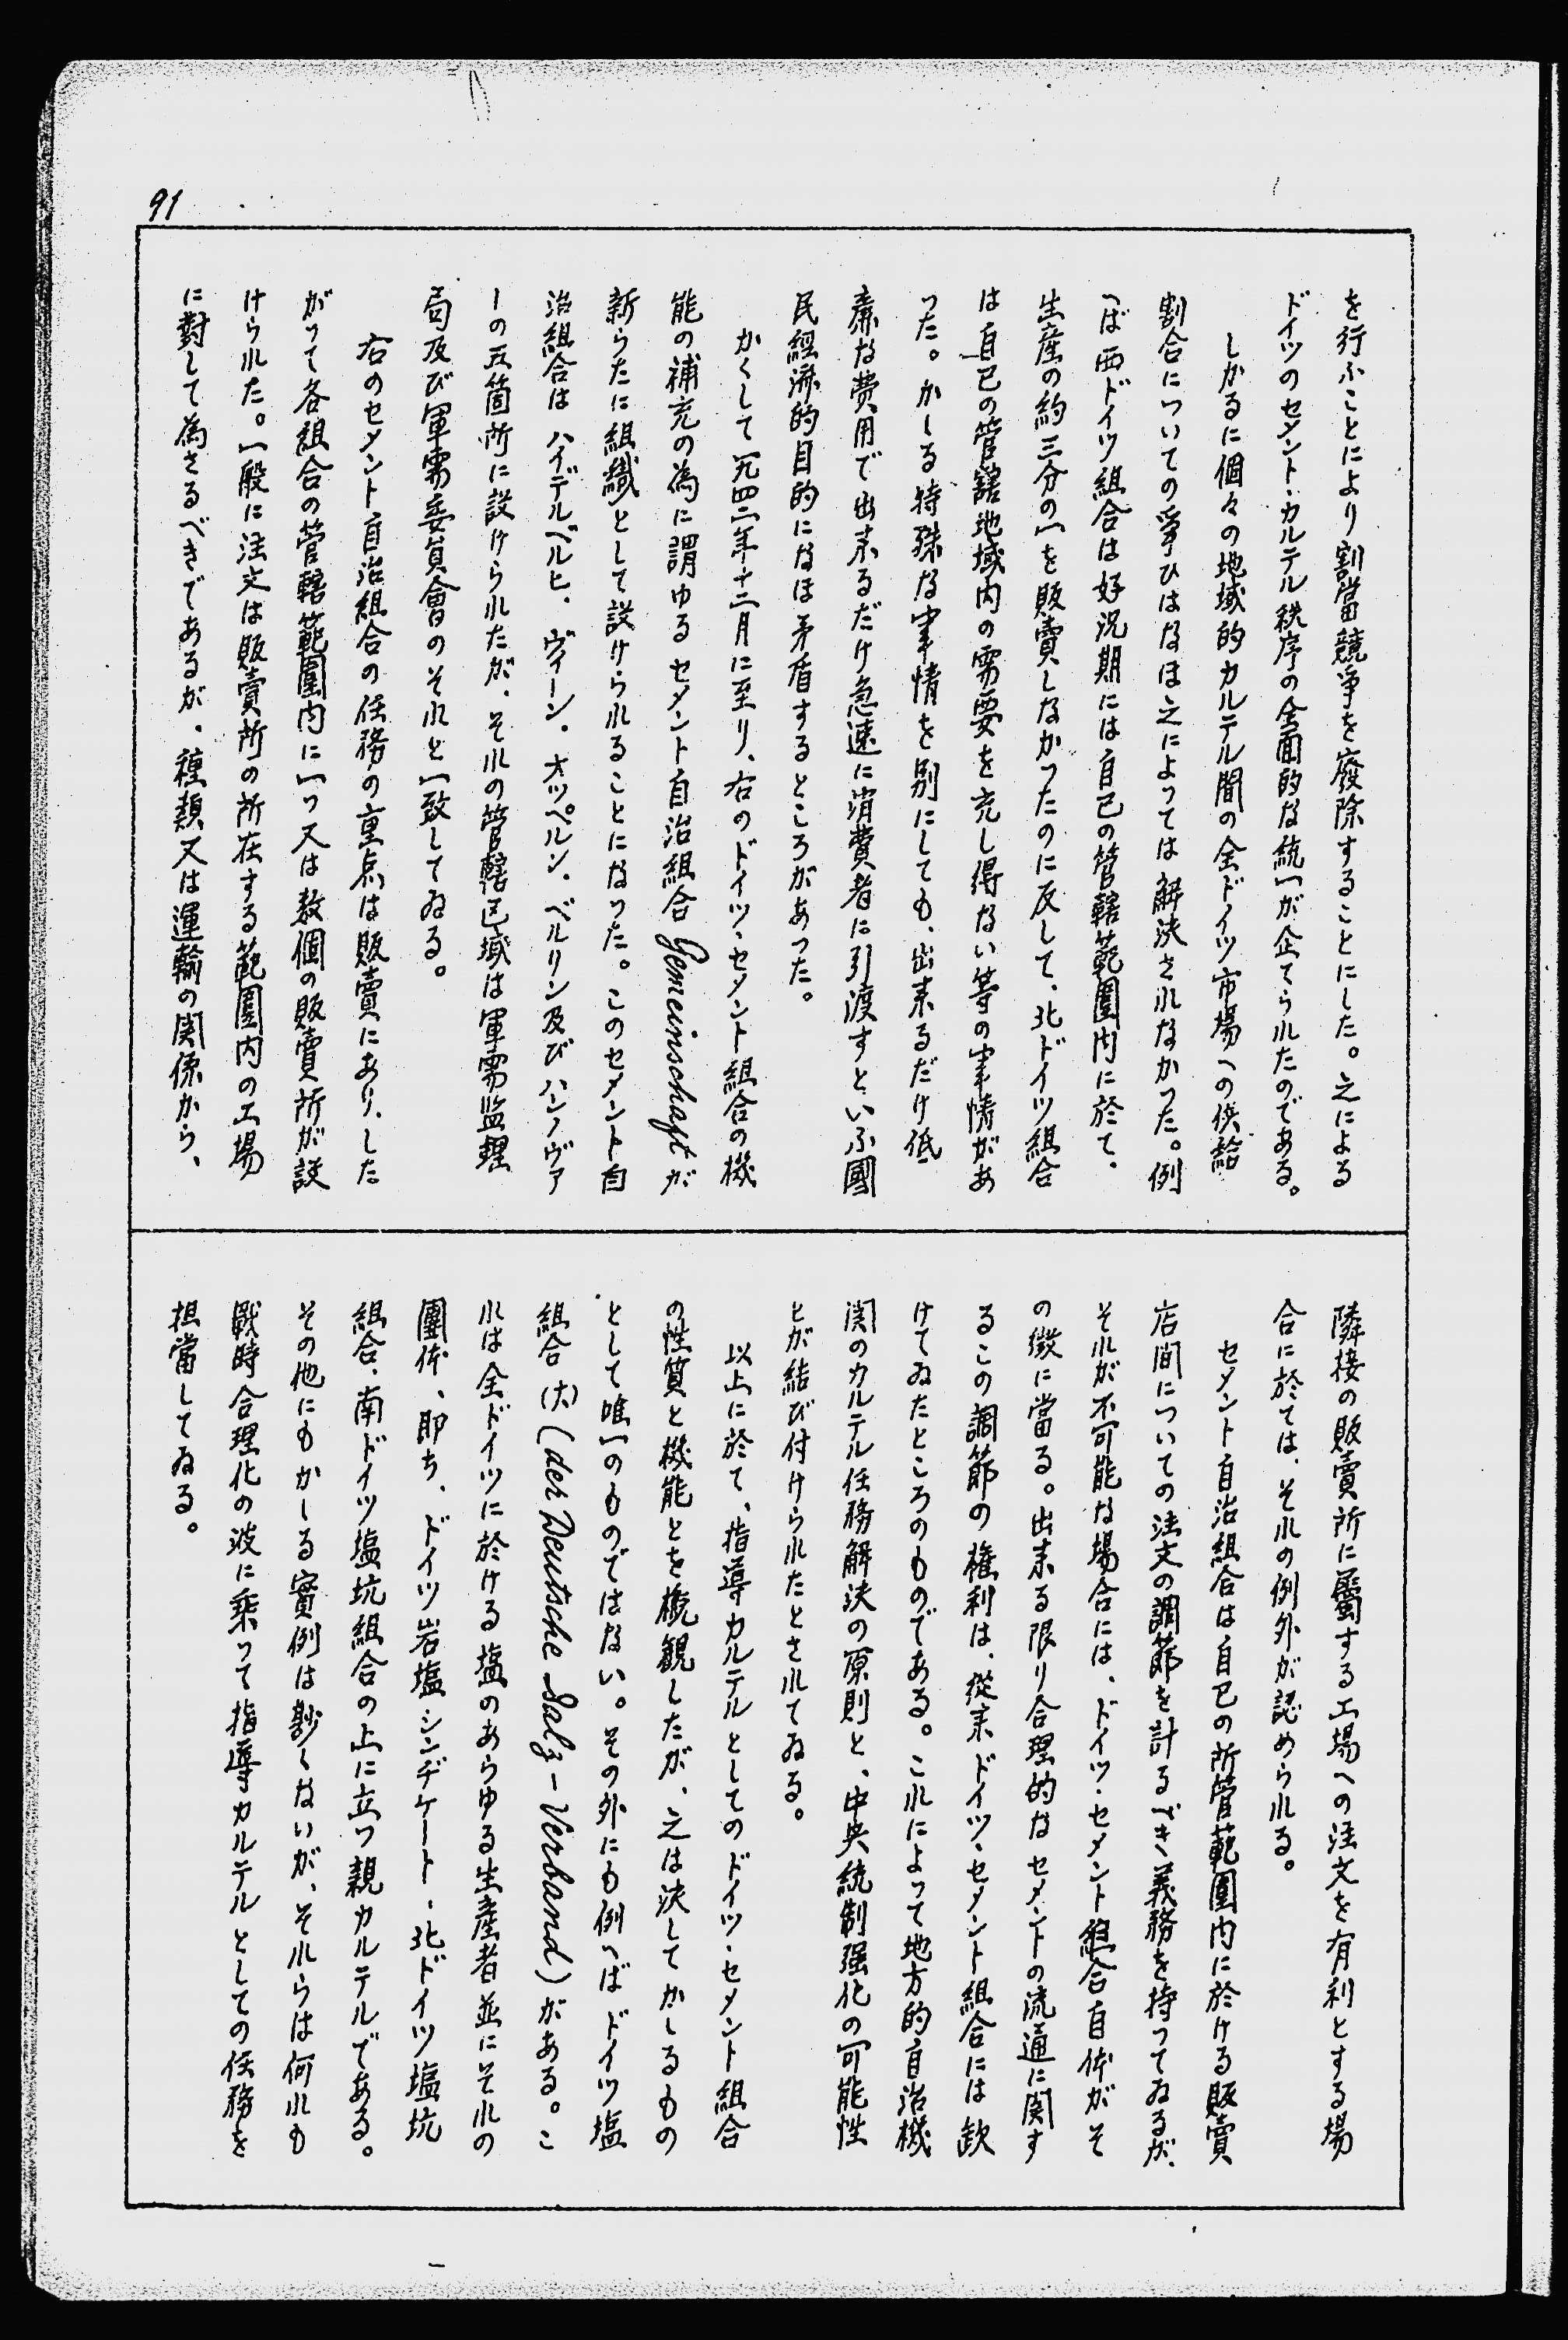 91
を行ふことにより割當競爭を廢除することにした。之による
ドイツのセメント・カルテル秩序の全面的な統一が企てられたのである。
しかるに個々の地域的カルテル間の全ドイツ市場への供給
割合についての爭ひはなほ之によっては解決されなかった。例
へば西ドイツ組合は好況期には自己の管轄範圍内に於て、
生産の約三分の一を販賣しなかったのに反して、北ドイツ組合
は自己の管轄地域内の需要を充し得ない等の事情があ
った。かゝる特殊な事情を別にしても、出来るだけ低
廉な費用で出来るだけ急速に消費者に引渡すといふ國
民經濟的目的になほ矛盾するところがあった。
かくして一九四二年十二月に至り、右のドイツ・セメント組合の機
能の補充の為に謂ゆるセメント自治組合 Gemeinschaft が
新らたに組織として設けられることになった。このセメント自
治組合はハイデルベルヒ、ヴィーン、オッペルン、ベルリン及びハンノヴァ
ーの五箇所に設けられたが、それの管轄区域は軍需監理
局及び軍需委員會のそれと一致してゐる。
右のセメント自治組合の任務の重点は販賣にあり、した
がって各組合の管轄範圍内に一つ又は数個の販賣所が設
けられた。一般に注文は販賣所の所在する範圍内の工場
に對して為さるべきであるが、種類又は運輸の関係から、
隣接の販賣所に屬する工場への注文を有利とする場
合に於ては、それの例外が認められる。
セメント自治組合は自己の所管範圍内に於ける販賣
店間についての注文の調節を計るべき義務を持ってゐるが、
それが不可能な場合には、ドイツ・セメント組合自体がそ
の衡に當る。出来る限り合理的なセメントの流通に関す
るこの調節の権利は、從来ドイツ・セメント組合には欽
けてゐたところのものである。これによって地方的自治機
関のカルテル任務解決の原則と、中央統制强化の可能性
とが結び付けられたとされてゐる。
以上に於て、指導カルテルとしてのドイツ・セメント組合
の性質と機能とを概観したが、之は決してかゝるもの
として唯一のものではない。その外にも例へばドイツ塩
組合 (der Deutsche Salz-Verband) がある。こ
れは全ドイツに於ける塩のあらゆる生産者並にそれの
團体、即ち、ドイツ岩塩シンヂケート、北ドイツ塩坑
組合、南ドイツ塩坑組合の上に立つ親カルテルである。
その他にもかゝる實例は尠くないが、それらは何れも
戰時合理化の波に乗って指導カルテルとしての任務を
担當してゐる。